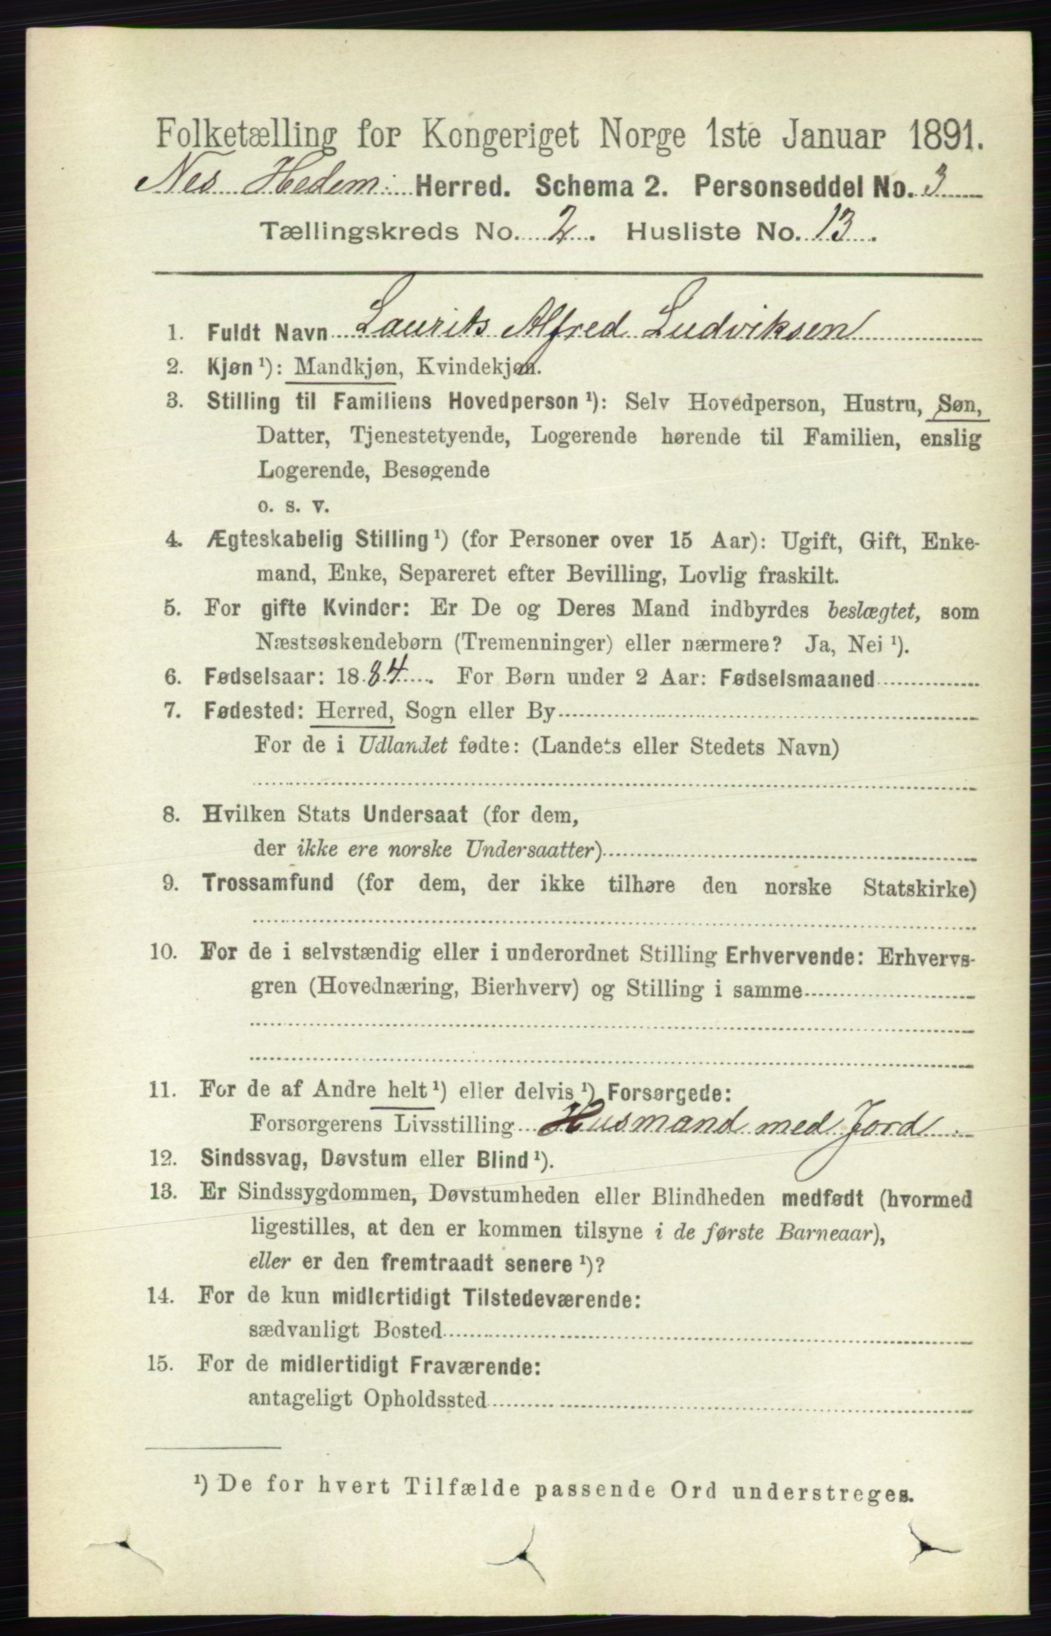 Folketælling for Kongeriget Norge 1ste Januar 1891.
Nes Hedem: Herred. Schema 2. Personseddel No. 3
Tællingskreds No. 2. Husliste No. 13.
1. Fuldt Navn Laurits Alfred Ludviksen
2. Kjøn ¹): Mandkjøn, Kvindekjøn.
3. Stilling til Familiens Hovedperson ¹): Selv Hovedperson, Hustru, Søn,
Datter, Tjenestetyende, Logerende hørende til Familien, enslig
Logerende, Besøgende
o. s. v.
4. Ægteskabelig Stilling ¹) (for Personer over 15 Aar): Ugift, Gift, Enke-
mand, Enke, Separeret efter Bevilling, Lovlig fraskilt.
5. For gifte Kvinder: Er De og Deres Mand indbyrdes beslægtet, som
Næstsøskendebørn (Tremenninger) eller nærmere? Ja, Nei ¹).
6. Fødselsaar: 1884. For Børn under 2 Aar: Fødselsmaaned
7. Fødested: Herred, Sogn eller By
For de i Udlandet fødte: (Landets eller Stedets Navn)
8. Hvilken Stats Undersaat (for dem,
der ikke ere norske Undersaatter)
9. Trossamfund (for dem, der ikke tilhøre den norske Statskirke)
10. For de i selvstændig eller i underordnet Stilling Erhvervende: Erhvervs-
gren (Hovednæring, Bierhverv) og Stilling i samme
11. For de af Andre helt ¹) eller delvis ¹) Forsørgede:
Forsørgerens Livsstilling Husmand med Jord
12. Sindssvag, Døvstum eller Blind ¹).
13. Er Sindssygdommen, Døvstumheden eller Blindheden medfødt (hvormed
ligestilles, at den er kommen tilsyne i de første Barneaar),
eller er den fremtraadt senere ¹)?
14. For de kun midlertidigt Tilstedeværende:
sædvanligt Bosted
15. For de midlertidigt Fraværende:
antageligt Opholdssted
¹) De for hvert Tilfælde passende Ord understreges.